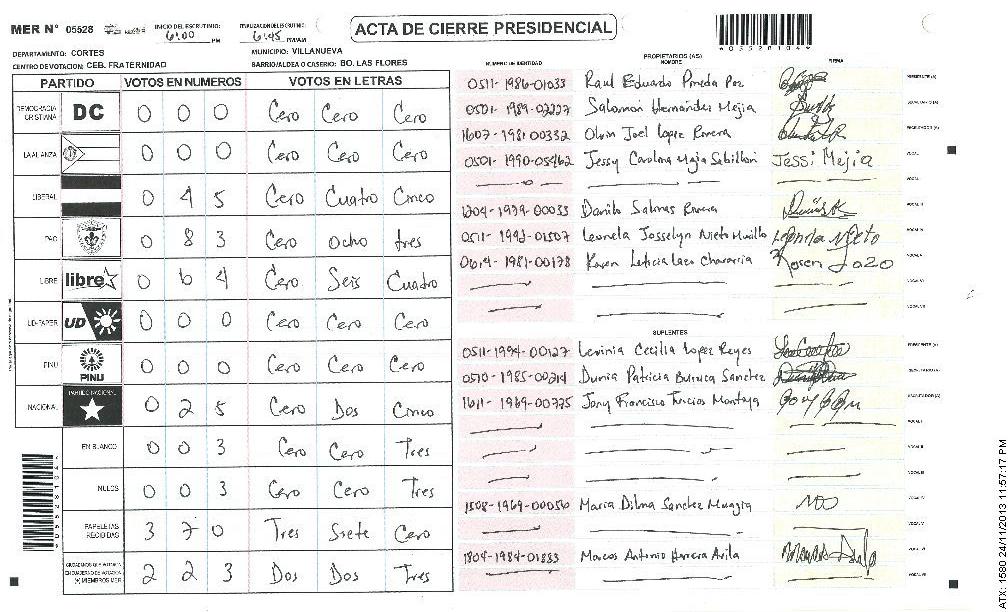 MER Nº 05528
INICIO DEL ESCRUTINIO: 6:00 PM
FINALIZACION DEL ESCRUTINIO: 6:45 PM/AM
ACTA DE CIERRE PRESIDENCIAL
DEPARTAMENTO: CORTES
MUNICIPIO: VILLANUEVA
CENTRO DE VOTACION: CEB. FRATERNIDAD
BARRIO/ALDEA O CASERIO: BO. LAS FLORES
PARTIDO VOTOS EN NUMEROS VOTOS EN LETRAS
DEMOCRACIA CRISTIANA DC 0 0 0 Cero Cero Cero
LA ALIANZA 0 0 0 Cero Cero Cero
LIBERAL 0 4 5 Cero Cuatro Cinco
PAC 0 8 3 Cero Ocho tres
LIBRE libre 0 6 4 Cero Seis Cuatro
UD-FAPER UD 0 0 0 Cero Cero Cero
PINU PINU 0 0 0 Cero Cero Cero
NACIONAL PARTIDO NACIONAL 0 2 5 Cero Dos Cinco
EN BLANCO 0 0 3 Cero Cero Tres
NULOS 0 0 3 Cero Cero Tres
PAPELETAS RECIBIDAS 3 7 0 Tres Siete Cero
CIUDADANOS QUE VOTARON EN CUADERNO DE VOTACION (+) MIEMBROS MER 2 2 3 Dos Dos Tres
PROPIETARIOS (AS)
NUMERO DE IDENTIDAD NOMBRE FIRMA
0511-1986-01033 Raul Eduardo Pineda Paz PRESIDENTE (A)
0501-1989-02227 Salomon Hernandez Mejia SECRETARIO (A)
1607-1981-00332 Olvin Joel Lopez Rivera ESCRUTADOR (A)
0501-1990-05462 Jessy Carolina Mejia Sabillon Jessi Mejia VOCAL I
VOCAL II
1204-1979-00033 Danilo Salinas Rivera VOCAL III
0511-1992-01507 Leonela Josselyn Nieto Murillo Leonela Nieto VOCAL IV
0614-1981-00178 Karen Leticia Lazo Chavarria VOCAL V
VOCAL VI
VOCAL VII
SUPLENTES
0511-1994-00127 Levinia Cecilia Lopez Reyes PRESIDENTE (A)
0510-1985-00214 Dunia Patricia Sanchez SECRETARIO (A)
1611-1969-00775 Jony Francisco Montoya ESCRUTADOR (A)
VOCAL I
VOCAL II
VOCAL III
1508-1969-00056 Maria Dilma Sanchez VOCAL IV
VOCAL V
1804-1984-01833 Marcos Antonio Herrera Avila VOCAL VI
VOCAL VII
ATX: 1580 24/11/2013 11:57:17 PM